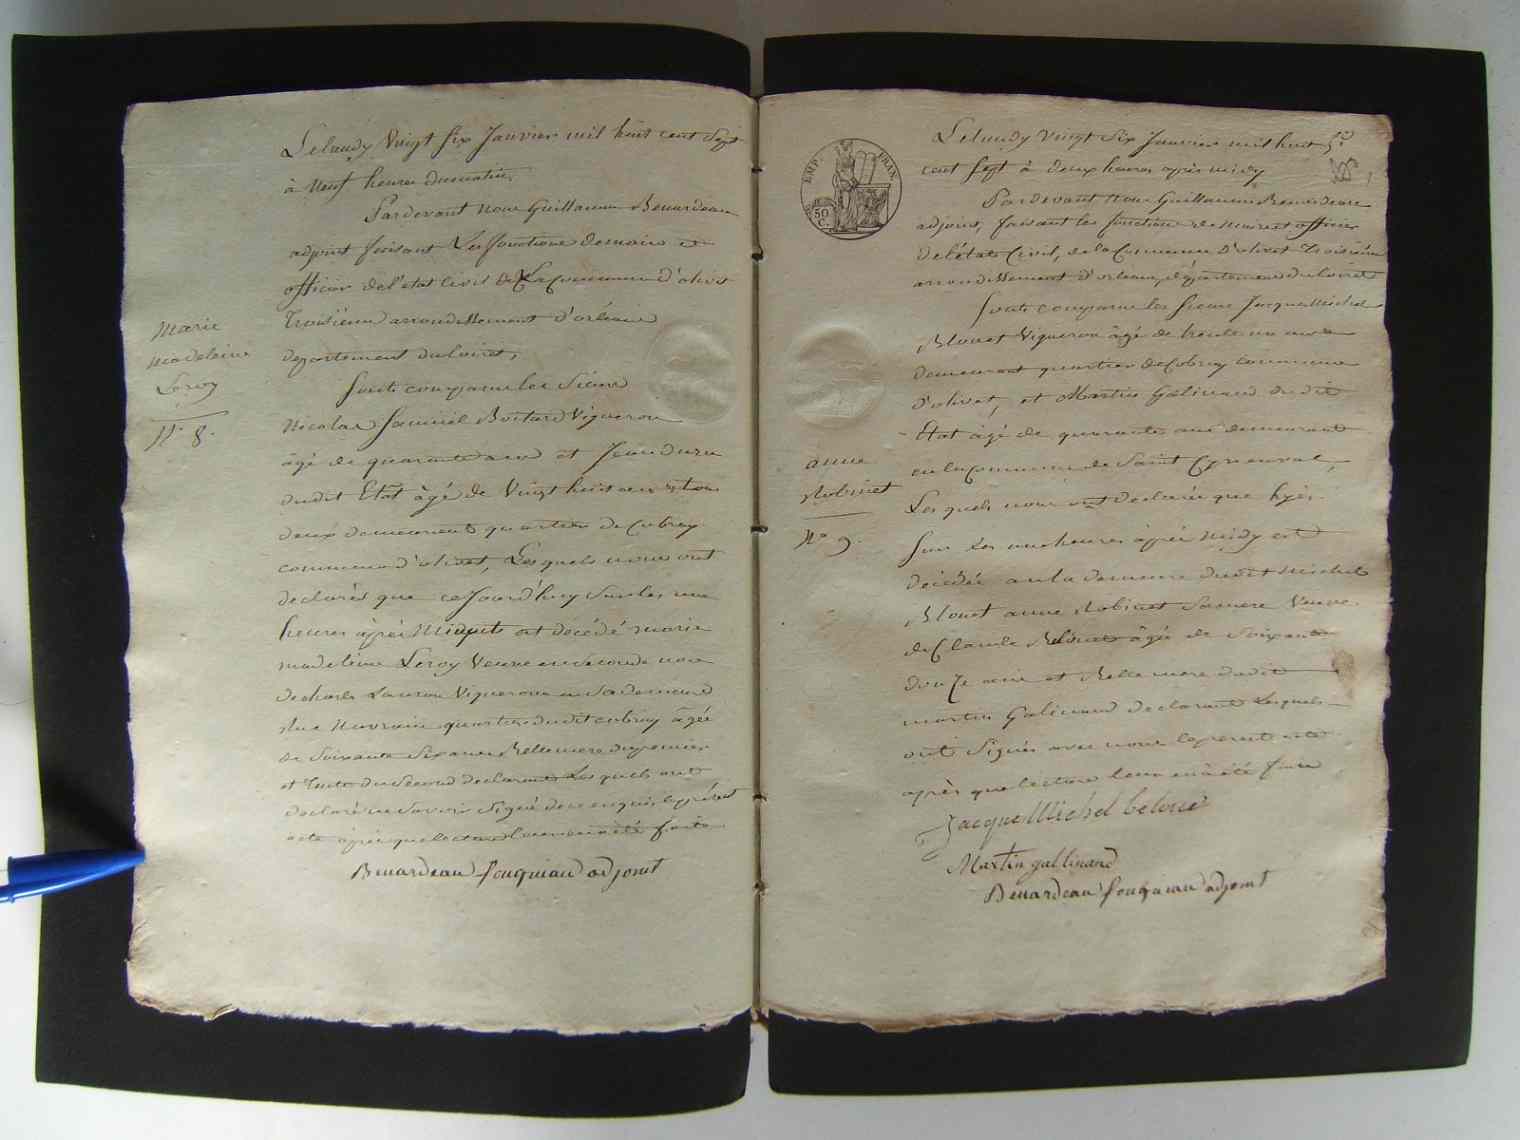 Le lundy Vingt Six Janvier mil huit cent Sept
à Neuf heures du matin,
Pardevant nous Guillaume Benardeau
adjoint faisant Les fonctions de maire et
officier de l'état Civil de La Commune d'olivet
Troisieme arrondissement d'orléans
departement du Loiret,
Sont comparu les Sieurs
Nicolas Samuel Boitard Vigneron
âgé de quarante ans et Jean
dudit Etat âgé de Vingt huit ans tous
deux demeurant quartier de Cubray
commune d'olivet, Les quels nous ont
declarés que ce Jourd'huy Sur les une
heures après Minuit est décédé marie
madeleine Leroy Veuve en Seconde noce
de charles Vigneron en Sa demeure
Rue quartier dudit cubray âgée
de Soixante Six ans Belle mere du premier
et tante du Second declarant Les quels ont
declaré ne Savoir Signé de ce enquis le présent
acte après que lecture leur en a été faite
Benardeau fouquiau adjoint
Marie
Madeleine
Leroy
N.º 8.
EMP. FRAN.
50
C.
Le lundy Vingt Six Janvier mil huit
cent Sept à deux heures après midy
Pardevant nous Guillaume Benardeau
adjoint, faisant les fonctions de maire et officier
de l'état Civil, de la Commune d'olivet Troisieme
arrondissement d'orleans, département du Loiret
Sont comparu les Sieurs Jacque Michel
Blouet Vigneron âgé de trente un ans
demeurant quartier de Cubray commune
d'olivet, et Martin Galinand dudit
Etat âgé de quarante ans demeurant
en la Commune de Saint Cyr en val,
Les quels nous ont declarés que hyer
Sur Les une heures après Midy est
décédée en la demeure dudit Michel
Blouet anne Robinet Sa mere Veuve
de Claude Blouet âgée de Soixante
douze ans et Belle mere dudit
martin Galinand declarant Lesquels
ont Signés avec nous le present acte
après que lecture leur en a été faite
Jacque Michel beloué
Martin gallinand
Benardeau fouquiau adjoint
anne
Robinet
Nº 9.